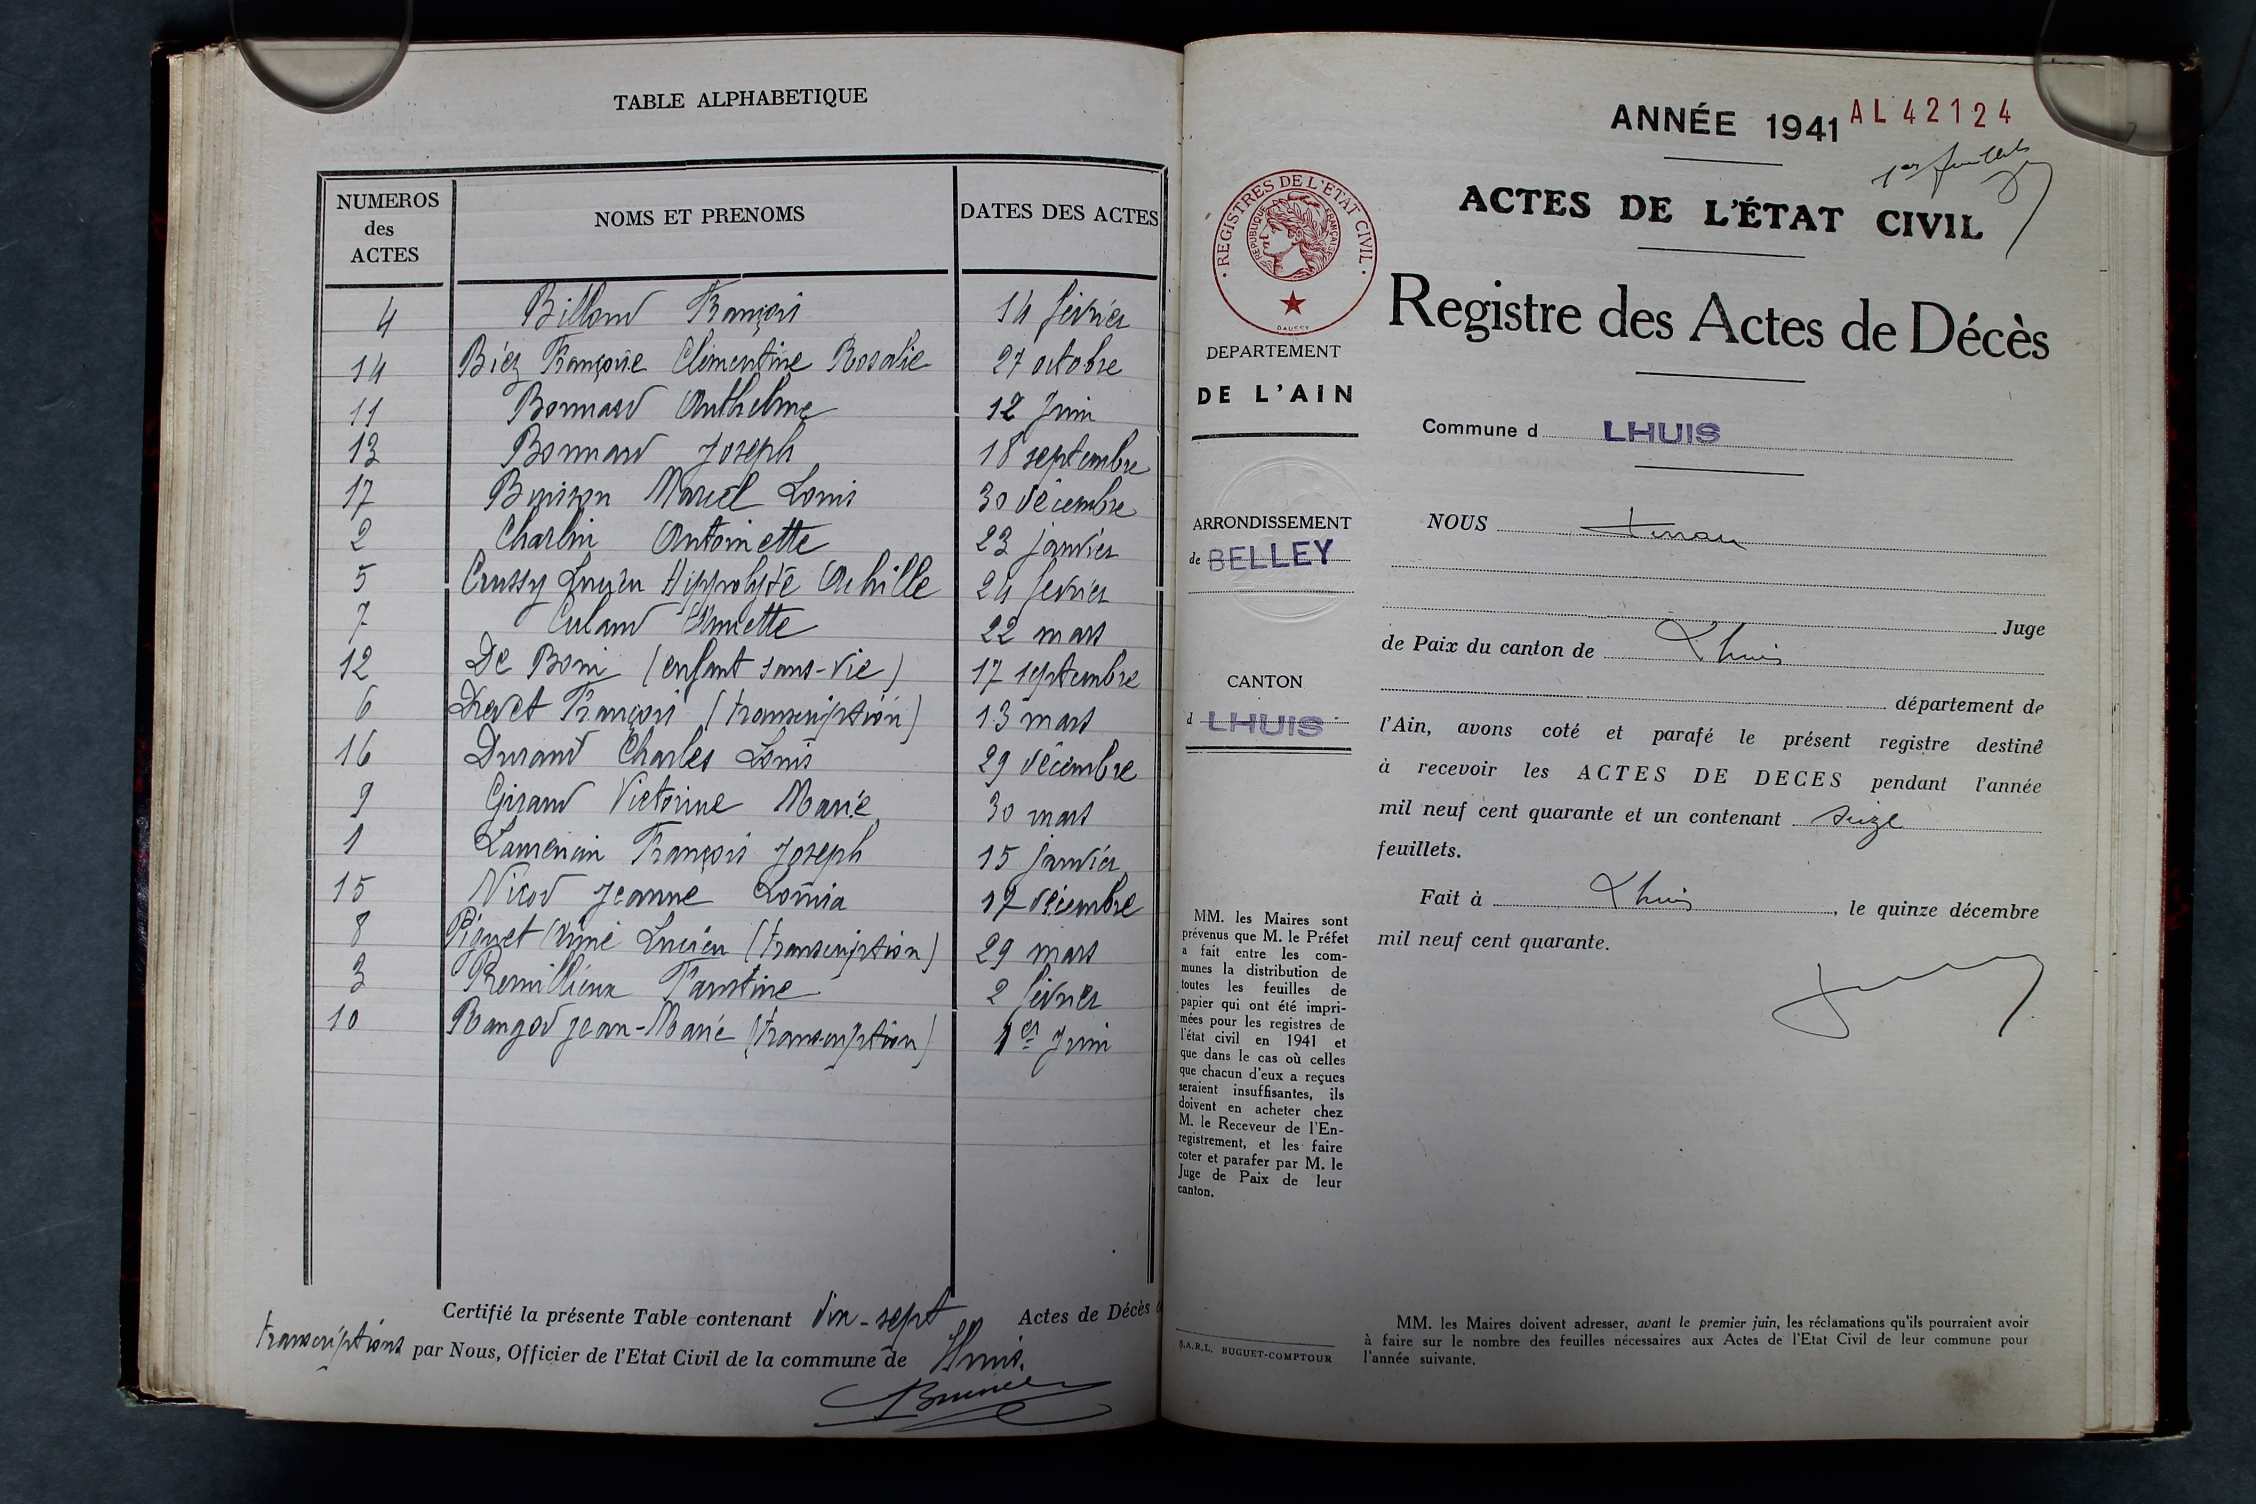 TABLE ALPHABETIQUE
NUMEROS des ACTES
NOMS ET PRENOMS
DATES DES ACTES
4 Billoud François 14 février
14 Biez Françoise Clémentine Rosalie 27 octobre
11 Bonnard Anthelme 12 Juin
13 Bonnard Joseph 18 septembre
17 Buisson Marcel Louis 30 décembre
2 Charlin Antoinette 23 janvier
5 Lucien Hippolyte Achille 24 février
7 Culand 22 mars
12 De Boni (enfant sans-vie) 17 septembre
6 Drevet François (transcription) 13 mars
16 Durand Charles Louis 29 décembre
9 Giraud Victorine Marie 30 mars
1 François Joseph 15 janvier
15 Nicod Jeanne Louisa 17 décembre
8 Piguet Aimé Lucien (transcription) 29 mars
3 Remillieux Faustine 2 février
10 Rangod Jean-Marie (transcription) 1er Juin
Certifié la présente Table contenant dix-sept Actes de Décès
transcriptions par Nous, Officier de l'Etat Civil de la commune de Lhuis.
ANNÉE 1941
AL 42124
1er feuillet
ACTES DE L'ÉTAT CIVIL
Registre des Actes de Décès
· REGISTRES DE L'ETAT CIVIL ·
REPUBLIQUE FRANÇAISE
DAUSSY
DEPARTEMENT
DE L'AIN
ARRONDISSEMENT
de BELLEY
CANTON
d LHUIS
MM. les Maires sont
prévenus que M. le Préfet
a fait entre les com-
munes la distribution de
toutes les feuilles de
papier qui ont été impri-
mées pour les registres de
l'état civil en 1941 et
que dans le cas où celles
que chacun d'eux a reçues
seraient insuffisantes, ils
doivent en acheter chez
M. le Receveur de l'En-
registrement, et les faire
coter et parafer par M. le
Juge de Paix de leur
canton.
S.A.R.L. BUGUET-COMPTOUR
Commune d LHUIS
NOUS
Juge
de Paix du canton de Lhuis
département de
l'Ain, avons coté et parafé le présent registre destiné
à recevoir les ACTES DE DECES pendant l'année
mil neuf cent quarante et un contenant seize
feuillets.
Fait à Lhuis, le quinze décembre
mil neuf cent quarante.
MM. les Maires doivent adresser, avant le premier juin, les réclamations qu'ils pourraient avoir
à faire sur le nombre des feuilles nécessaires aux Actes de l'Etat Civil de leur commune pour
l'année suivante.